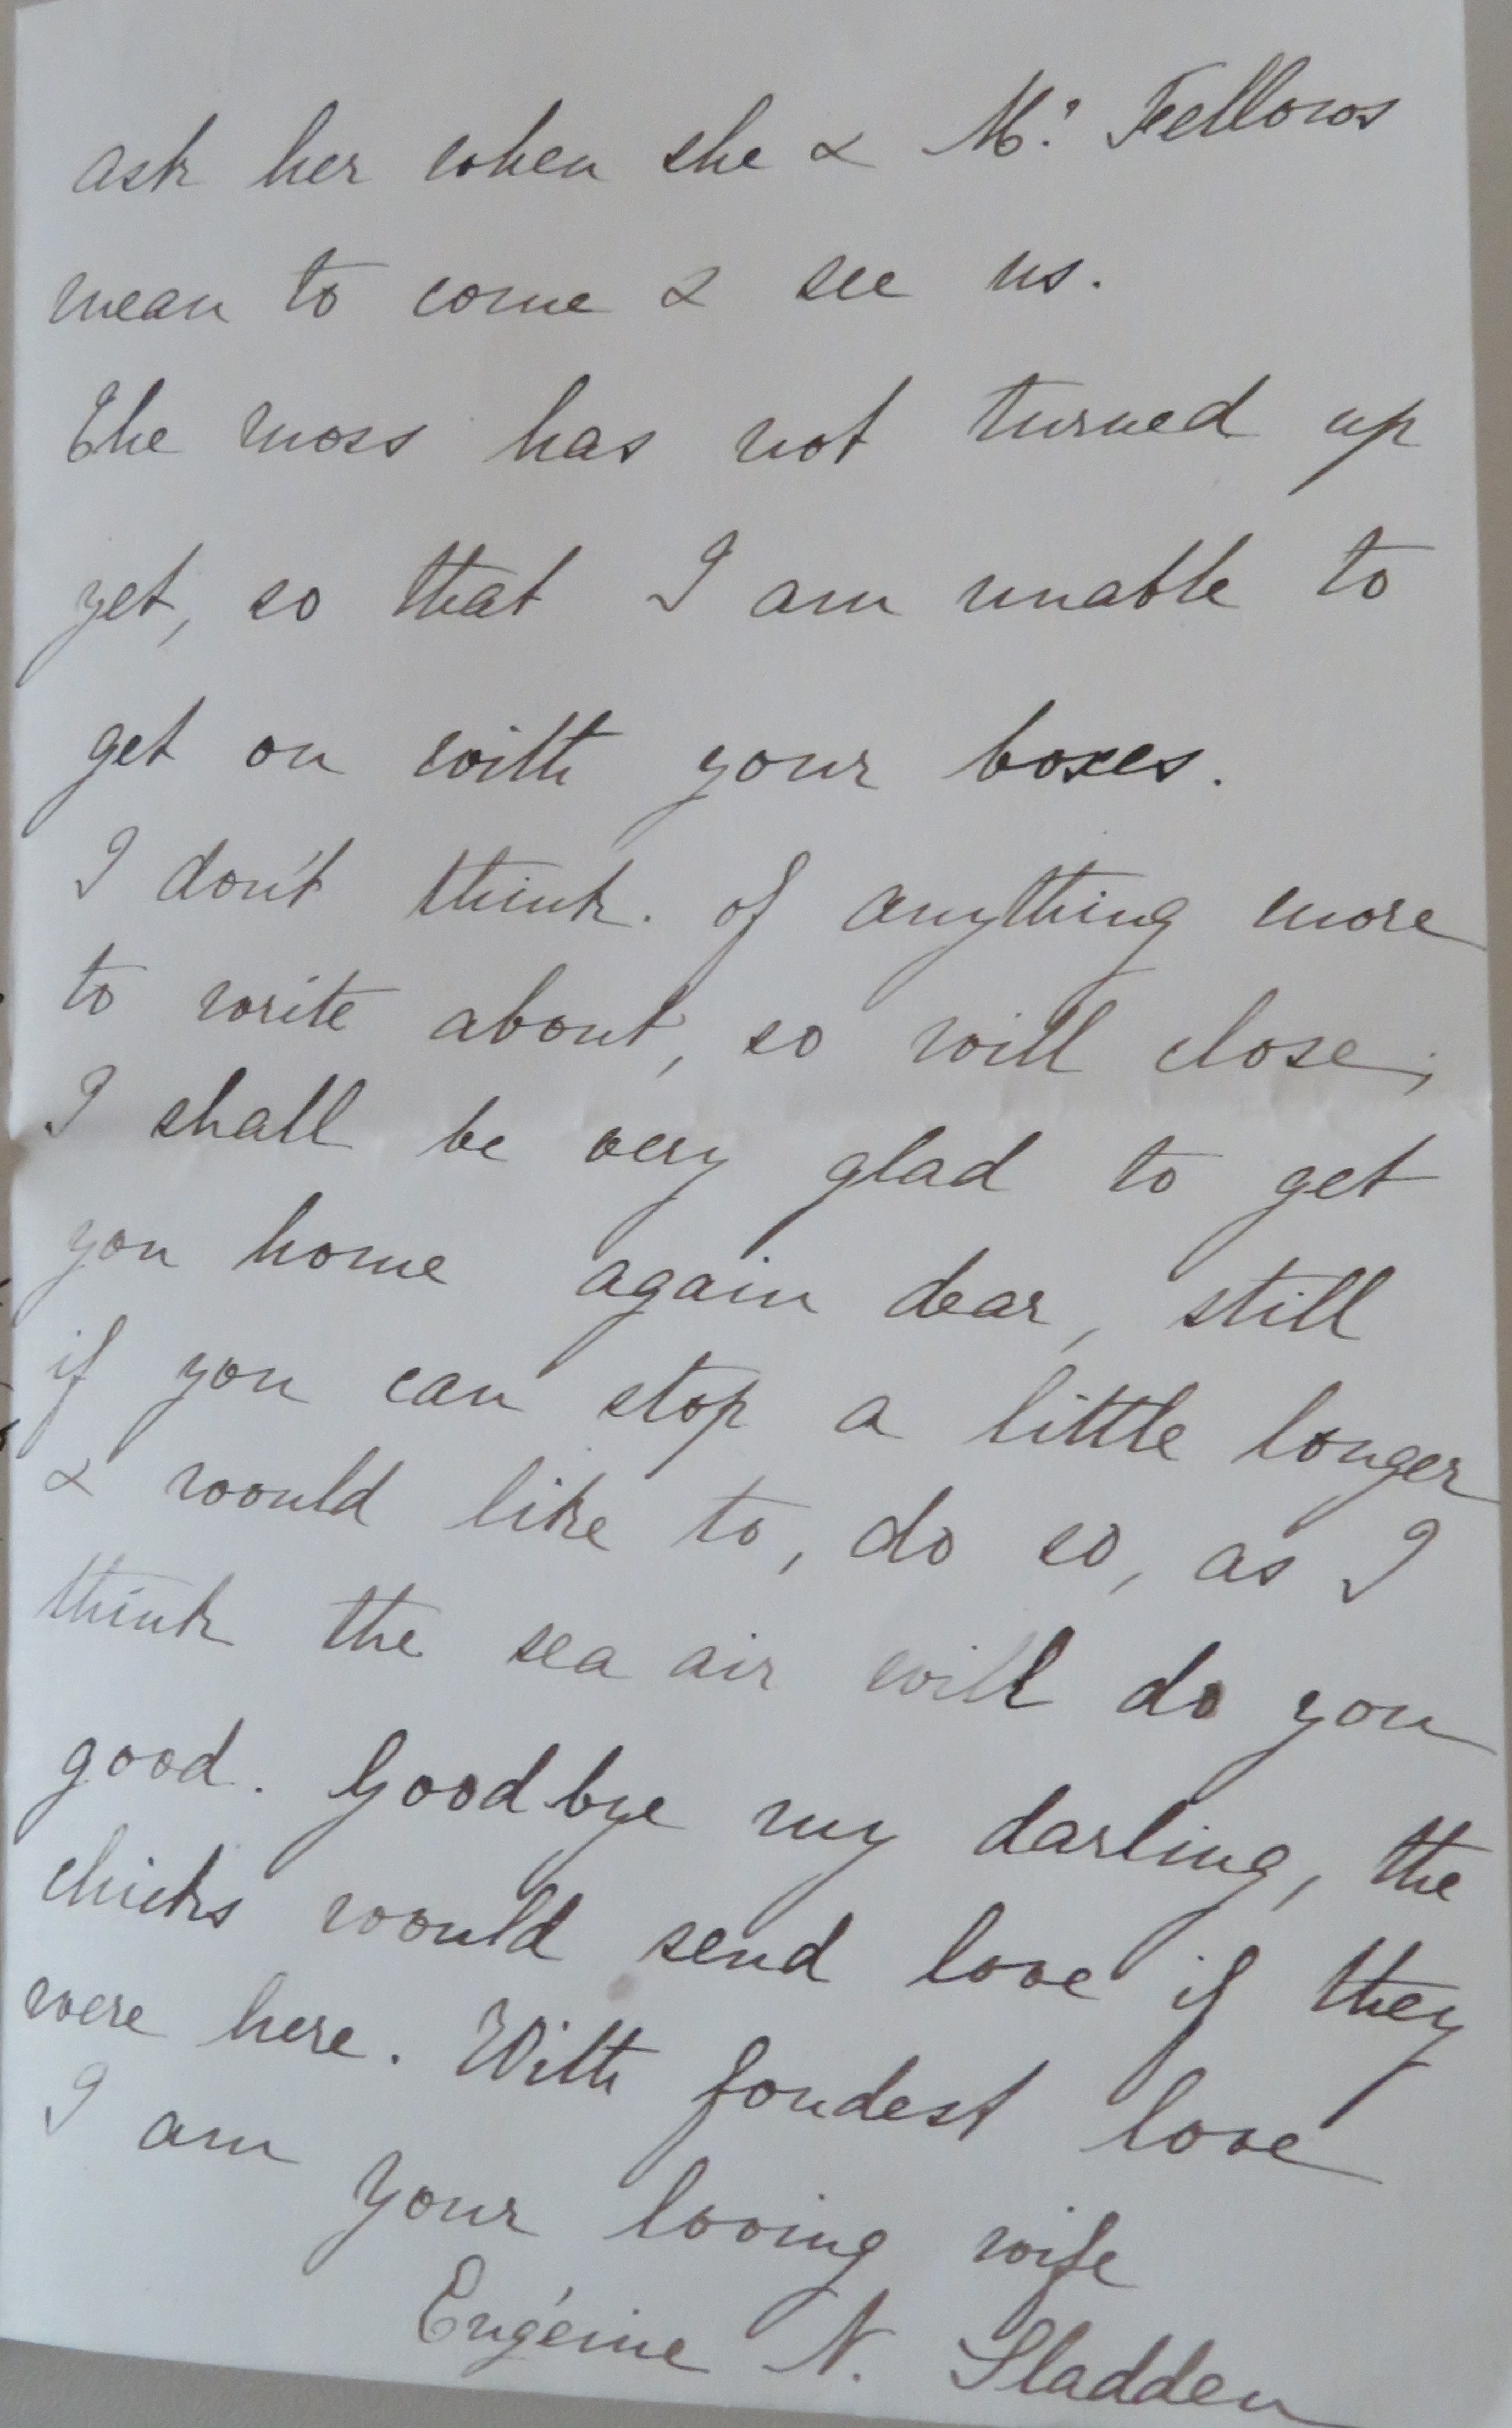 ask her when she & Mr. Fellows
mean to come & see us.
The moss has not turned up
yet, so that I am unable to
get on with your boxes.
I don't think. of anything more
to write about, so will close;
I shall be very glad to get
you home again dear, still
if you can stop a little longer
& would like to, do so, as I
think the sea air will do you
good. Goodbye my darling, the
chicks would send love if they
were here. With fondest love
I am
your loving wife
Eugénie N. Sladden